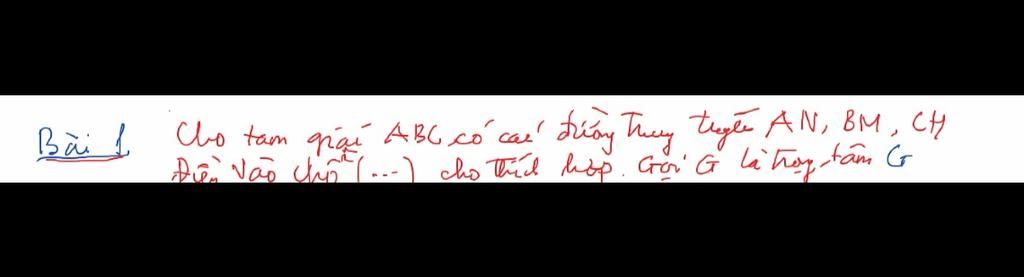 Bài 1 Cho tam giác ABC có các đường Trung tuyến AN, BM, CH
Điền vào chỗ (...) cho thích hợp. Gọi G là trọng tâm G